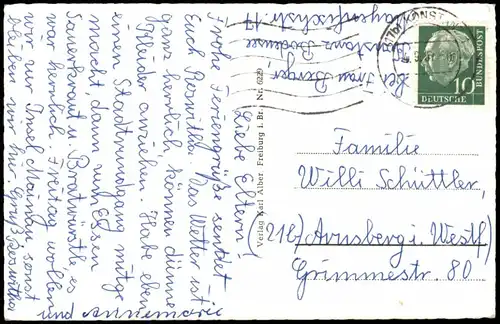 bei Frau Berger,
Konstanz Bodensee
Bayenfischstr. 17
Liebe Eltern!
Frohe Feriengrüße sendet
Euch Roswitha. Das Wetter ist
ganz herrlich, können dünne
Kleider anziehen. Habe eben
einen Stadtrundgang mitge
macht, dann zum Essen
Sauerkraut u. Bratwürstle, es
war herrlich. Freitag wollen
wir zur Insel Mainau, sonst
bleiben wir hier. Gruß Roswitha
und Annemarie
Verlag Karl Alber, Freiburg i. Br. Nr. 6229
KONSTANZ
10
DEUTSCHE
BUNDESPOST
Familie
Willi Schüttler,
(21b) Arnsberg i. Westf.
Grimmestr. 80